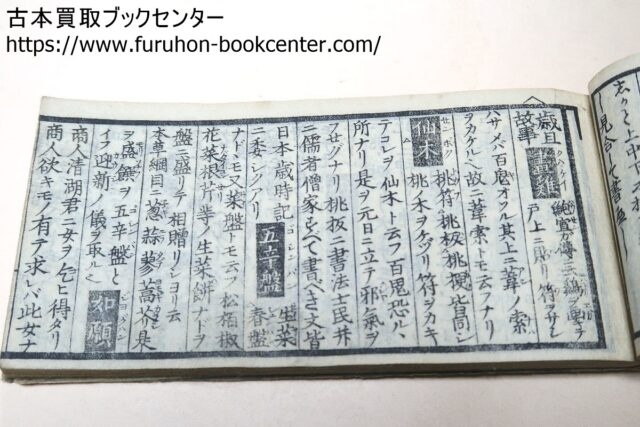 古本買取ブックセンター
https://www.furuhon-bookcenter.com/
歳旦故事 畫雞
戸上ニ貼リ符ヲサシ
ハサメバ百鬼オソル其上ニ葦ノ索
ヲカケベシ故ニ葦索トモ云フナリ
仙木 桃符桃板桃梗皆同シ
桃木ヲケヅリ符ヲカキ
テコレヲ仙木ト云フ百鬼恐ル丶
所ナリ是ヲ元日ニ立テ邪氣ヲ
フセグナリ桃板ニ書法士民并
ニ儒者僧家すべて書べき文皆
日本歳時記
ニ委シクアリ 五辛盤 生菜
春盤
ナドトモ又菜盤トモ云フ松柏椒
花菜根芹等ノ生菜餅ナドヲ
盤ニ盛リテ相贈リシヨリ云
本草綱目ニ葱蒜蓼蒿芥是
ヲ盛饌ヲ五辛盤と
イフ迎新ノ儀ヲ取ル 如願
商人清湖君ニ女ヲ乞ヒ得タリ
商人欲キモノ有テ求レバ此女ナ